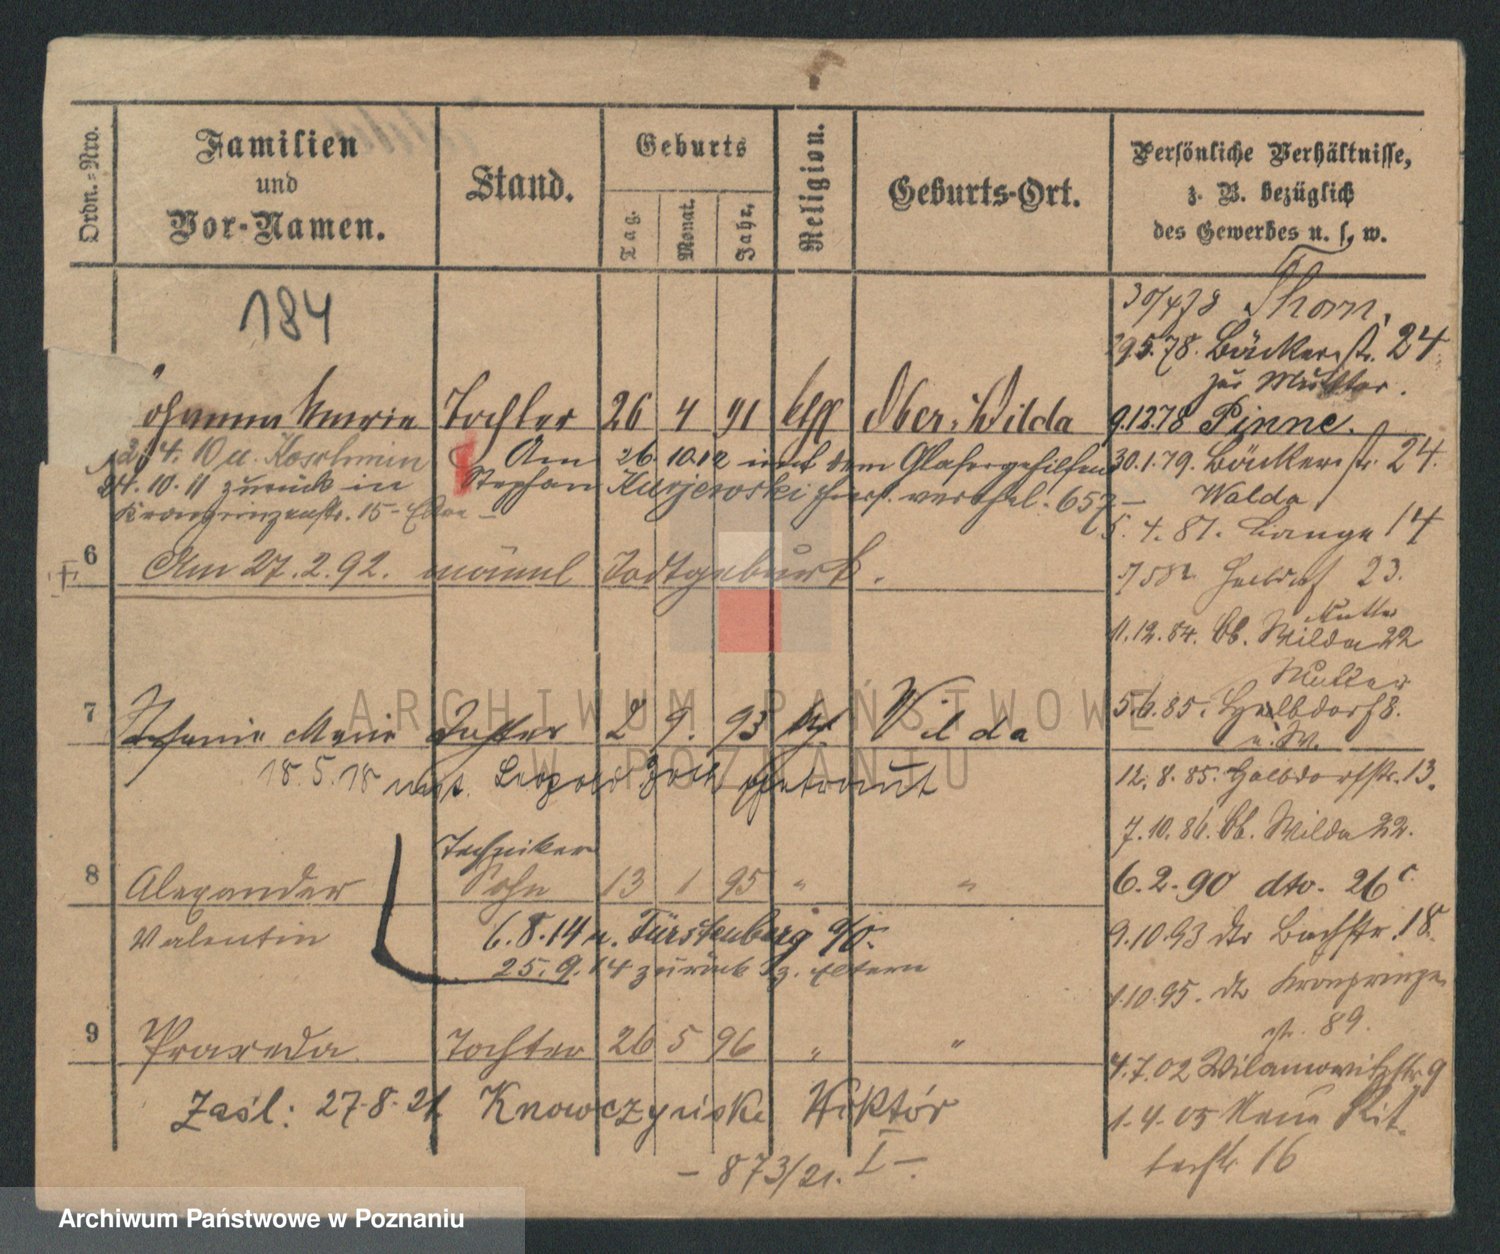 Ordn.-Nro.
Familien
und
Vor-Namen.
Stand.
Geburts
Tag.
Monat.
Jahr.
Religion.
Geburts-Ort.
Persönliche Verhältnisse,
z. B. bezüglich
des Gewerbes u. s. w.
184
Johanna Marie Tochter 26 4 91 Ober-Wilda
24.10.11 zurück in
Am 26.10.12 mit dem Glasergehilfen
Stephan Kurjewski verehel. 657
6 Am 27.2.92. männl Todtgeburt.
7 Stefanie Marie Tochter 2 9. 93 Wilda
18.5.18 mit. Leopold getraut
Techniker
8 Alexander Sohn 13 1 95 " "
Valentin
6.8.14 n. Fürstenberg a/O.
25.9.14 zurück z. Eltern
9 Praxeda Tochter 26 5 96 " "
Zaśl: 27-8-21 Wiktór
- 873/21. I -.
30/4 78 Thorn.
29.5.78. Bäckerstr. 24
zur Mutter.
9.12.78 Pinne.
30.1.79. Bäckerstr. 24.
Walda
5.4.81. Lange 14
23.
Mutter
11.12.84. Ob. Wilda 22
Mutter
5.6.85. Halbdorf 8.
u. W.
12.8.85. Halbdorfstr. 13.
7.10.86. Ob. Wilda 22.
6.2.90 dto. 26c
9.10.93 dto Bachstr. 18.
1.10.95. dto Kronprinzen
str. 89.
4.7.02 Wilamowitzstr 9
1.4.05 Neue Rit-
terstr 16
ARCHIWUM PAŃSTWOWE
W POZNANIU
Archiwum Państwowe w Poznaniu